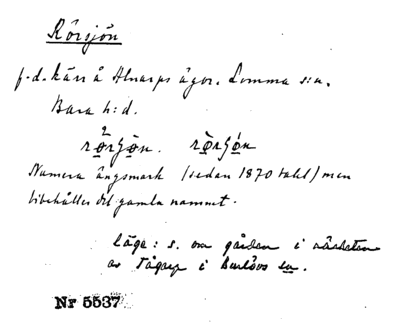 Rörsjön
f.d. kärr å Alnarps ägor. Lomma s:n.
Bara h:d.
rørʃøn. rørʃøn
Numera ängsmark (sedan 1870 talet) men
bibehåller det gamla namnet.
Läge: s. om gården i närheten
av Tågarp i Burlövs sn.
Nr 5537